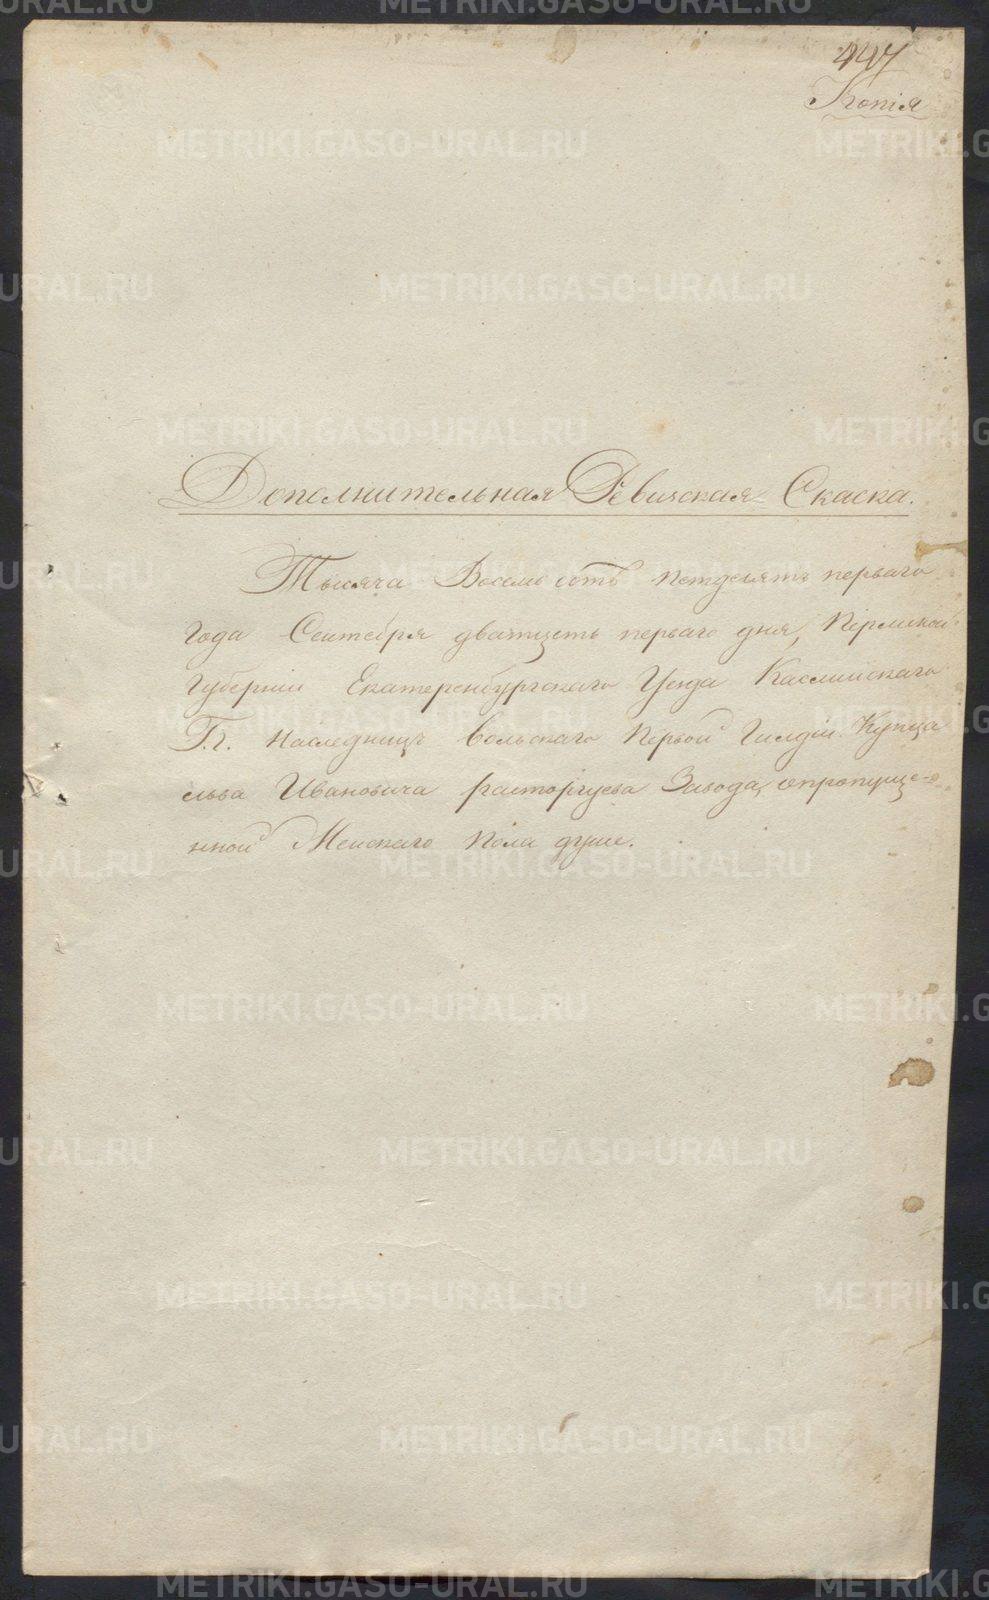 447
Копія
Дополнительная Ревизская Скаска.
Тысяча Восемь сотъ петдесятъ перваго
года Сентебря дватцеть перваго дня, Пермской
Губерніи Екатеренбургскаго Уезда Каслинскаго
Г.г. наследницъ Вольскаго Первой Гилдіи Купца
Льва Ивановича расторгуева Завода, опропуще-
нной Мецскаго Пола душе.
METRIKI.GASO-URAL.RU